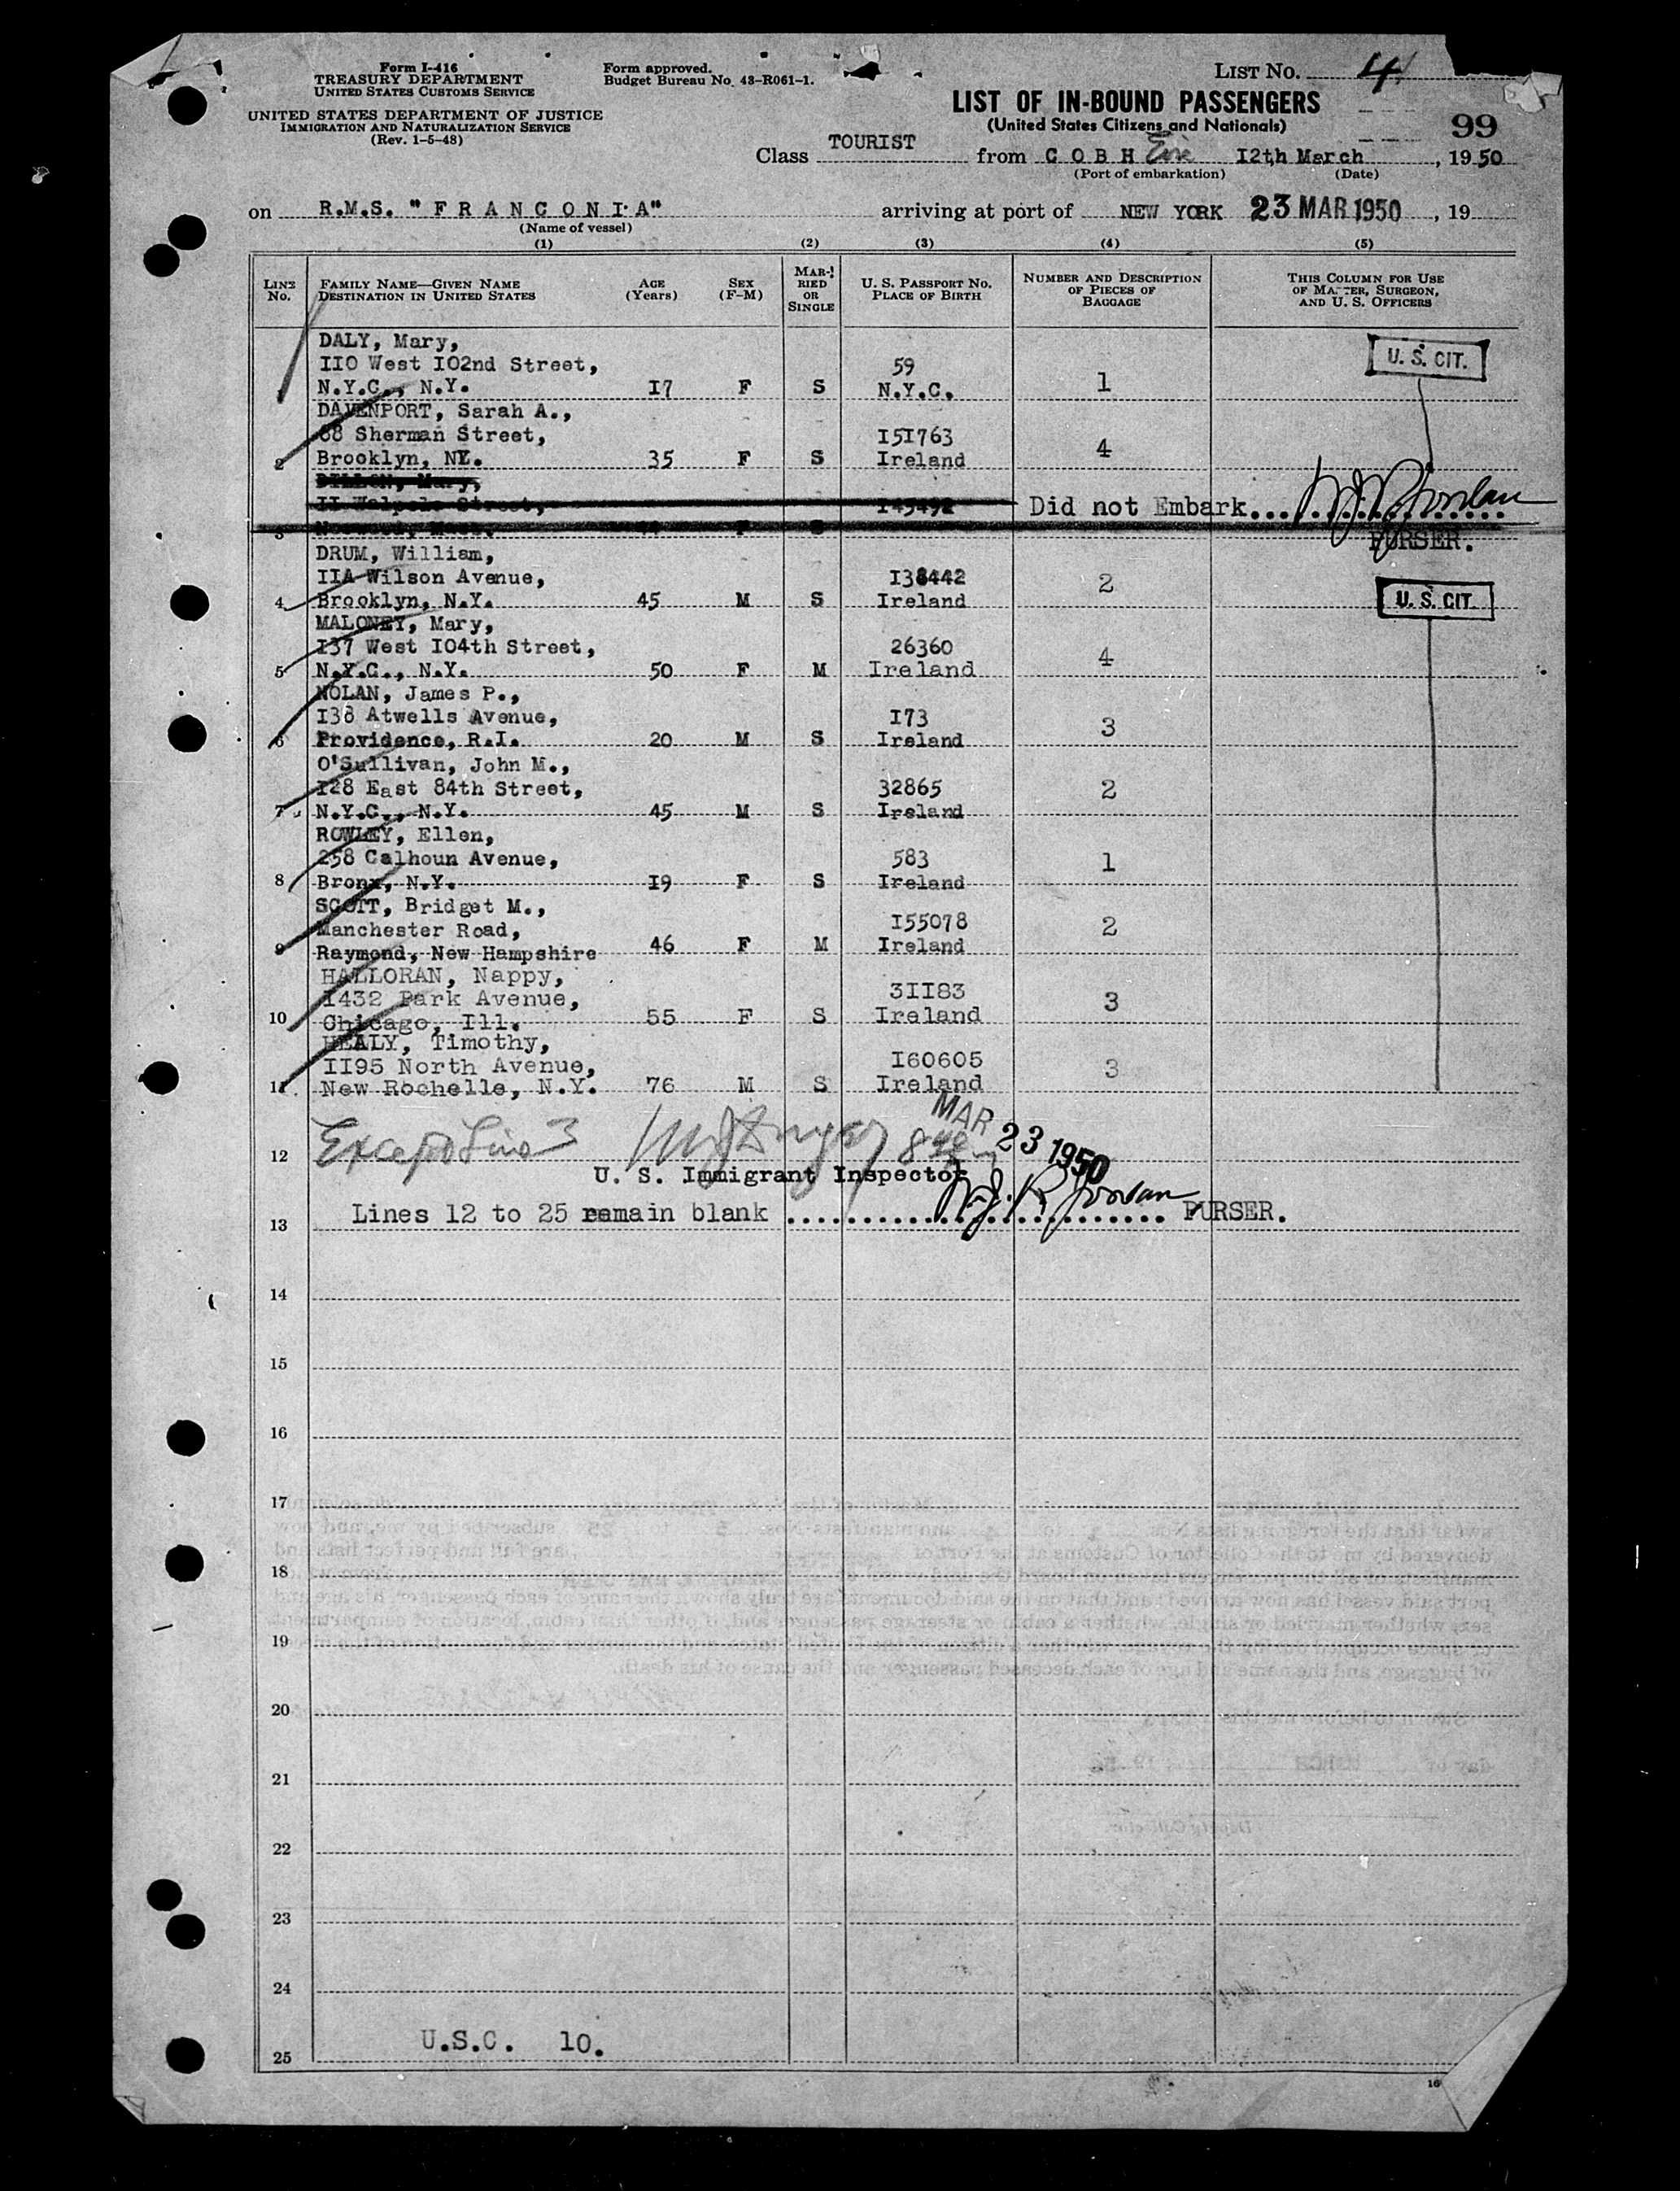 Form I-416
TREASURY DEPARTMENT
UNITED STATES CUSTOMS SERVICE
UNITED STATES DEPARTMENT OF JUSTICE
IMMIGRATION AND NATURALIZATION SERVICE
(Rev. 1-5-48)
Form approved.
Budget Bureau No. 43-R061-1.
LIST NO. 4
LIST OF IN-BOUND PASSENGERS
(United States Citizens and Nationals)
99
Class TOURIST from C O B H Eire 12th March, 1950
(Port of embarkation) (Date)
on R.M.S. "F R A N C O N I A" arriving at port of NEW YORK 23 MAR 1950, 19
(Name of vessel)
(1) (2) (3) (4) (5)
LINE No. FAMILY NAME—GIVEN NAME DESTINATION IN UNITED STATES AGE (Years) SEX (F-M) MARRIED OR SINGLE U. S. PASSPORT NO. PLACE OF BIRTH NUMBER AND DESCRIPTION OF PIECES OF BAGGAGE THIS COLUMN FOR USE OF MASTER, SURGEON, AND U. S. OFFICERS
DALY, Mary,
110 West 102nd Street, 59 1 U. S. CIT.
N.Y.C., N.Y. 17 F S N.Y.C.
DAVENPORT, Sarah A.,
68 Sherman Street, 151763 4
2 Brooklyn, NY. 35 F S Ireland
DILLON, Mary,
11 Walpole Street, 145492 Did not Embark... W.J.R. Jordan
3 Norwood, Mass. F S PURSER.
DRUM, William,
11A Wilson Avenue, 138442 2 U. S. CIT.
4 Brooklyn, N.Y. 45 M S Ireland
MALONEY, Mary,
137 West 104th Street, 26360 4
5 N.Y.C., N.Y. 50 F M Ireland
NOLAN, James P.,
138 Atwells Avenue, 173 3
6 Providence, R.I. 20 M S Ireland
O'Sullivan, John M.,
128 East 84th Street, 32865 2
7 N.Y.C., N.Y. 45 M S Ireland
ROWLEY, Ellen,
258 Calhoun Avenue, 583 1
8 Bronx, N.Y. 19 F S Ireland
SCOTT, Bridget M.,
Manchester Road, 155078 2
9 Raymond, New Hampshire 46 F M Ireland
HALLORAN, Nappy,
1432 Park Avenue, 31183 3
10 Chicago, Ill. 55 F S Ireland
HEALY, Timothy,
1195 North Avenue, 160605 3
11 New Rochelle, N.Y. 76 M S Ireland
MAR 23 1950
12 Except Line 3
U. S. Immigrant Inspector
13 Lines 12 to 25 remain blank ........ W.J.R. Jordan PURSER.
14
15
16
17
18
19
20
21
22
23
24
25 U.S.C. 10.
16